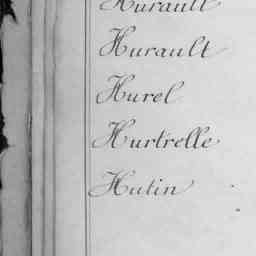 Hurault
Hurault
Hurel
Hurtrelle
Hutin